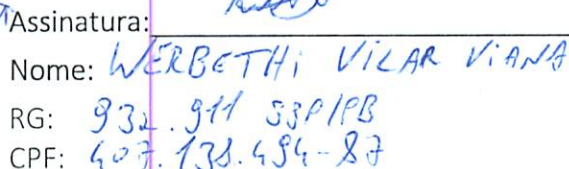 Assinatura:
Nome: WERBETHI VILAR VIANA
RG: 932.911 SSP/PB
CPF: 407.138.494-87